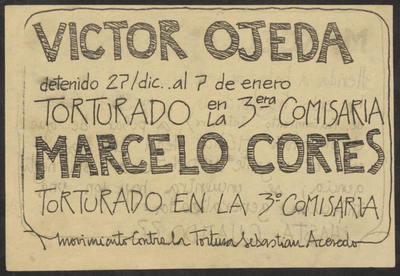 VICTOR OJEDA
detenido 27/dic..al 7 de enero
TORTURADO en LA 3era COMISARIA
MARCELO CORTES
TORTURADO EN LA 3º COMISARIA
Movimiento Contra la Tortura Sebastian Acevedo